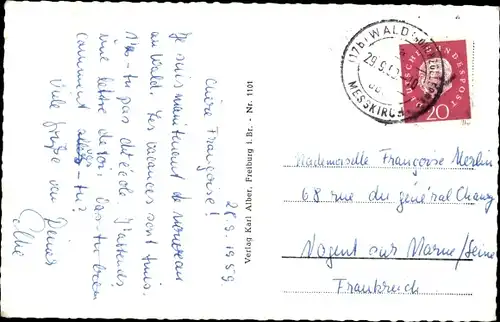 28.9.1959
Chère Françoise!
Je suis maintenant de nouveau
au Wald. Les vacances sont finis.
N'as-tu pas été école J'attends
une lettre de toi. Vas-tu bien
comment vas-tu?
Viele Grüße von Deiner
Verlag Karl Alber, Freiburg i. Br. - Nr. 1101
(17b) WALD
29.9.59
MESSKIRCH
DEUTSCHE BUNDESPOST
20
Mademoiselle Françoise Merlin
68 rue du général Chanzy
Nogent sur Marne/Seine
Frankreich